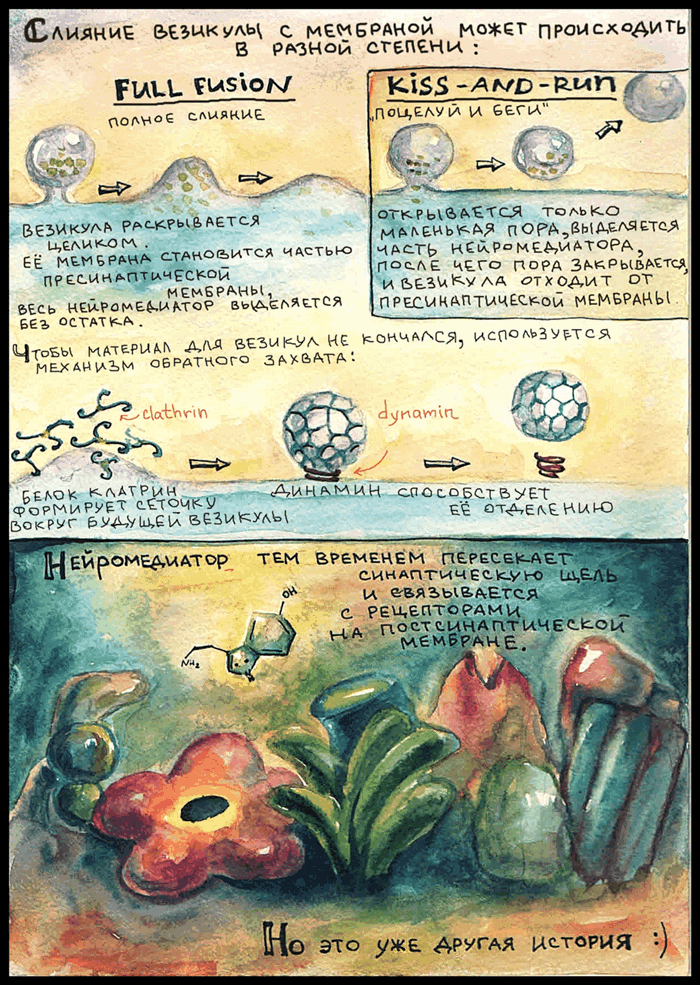 Слияние везикулы с мембраной может происходить
в разной степени:
FULL FUSION
полное слияние
KISS-AND-RUN
„поцелуй и беги"
Везикула раскрывается
целиком.
Её мембрана становится частью
пресинаптической
мембраны,
весь нейромедиатор выделяется
без остатка.
открывается только
маленькая пора, выделяется
часть нейромедиатора,
после чего пора закрывается,
и везикула отходит от
пресинаптической мембраны.
Чтобы материал для везикул не кончался, используется
механизм обратного захвата:
clathrin
dynamin
Белок клатрин
формирует сеточку
вокруг будущей везикулы
Динамин способствует
её отделению
Нейромедиатор тем временем пересекает
синаптическую щель
и связывается
с рецепторами
на постсинаптической
мембране.
OH
NH₂
Но это уже другая история :)